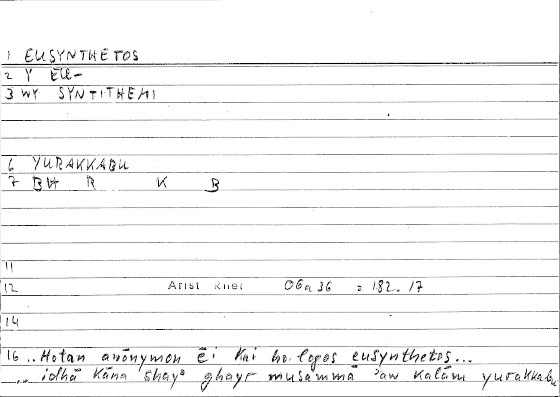 1 EUSYNTHETOS
2 Y EU-
3 WY SYNTITHEMI
6 YURAKKABU
7 BH R K B
11
12 Arist Rhet 06a36 : 182.17
14
16 ..Hotan anōnymon ēi kai ho logos eusynthetos...
.. idhā kāna shayʾ ghayr musammā ʾaw kalām yurakkabu